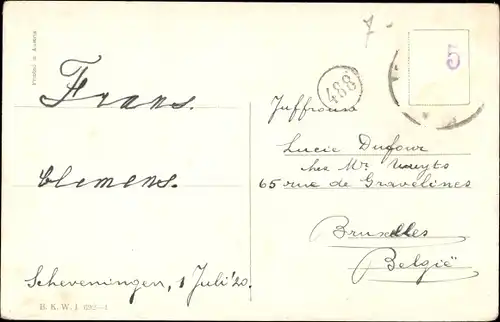 Printed in Austria
Frans.
Clemens.
Scheveningen, 1 Juli '20.
B. K. W. I. 682—1
7-
5
488
Juffrouw
Lucie Dufour
chez Mr
65 rue de Gravelines
Bruxelles
België